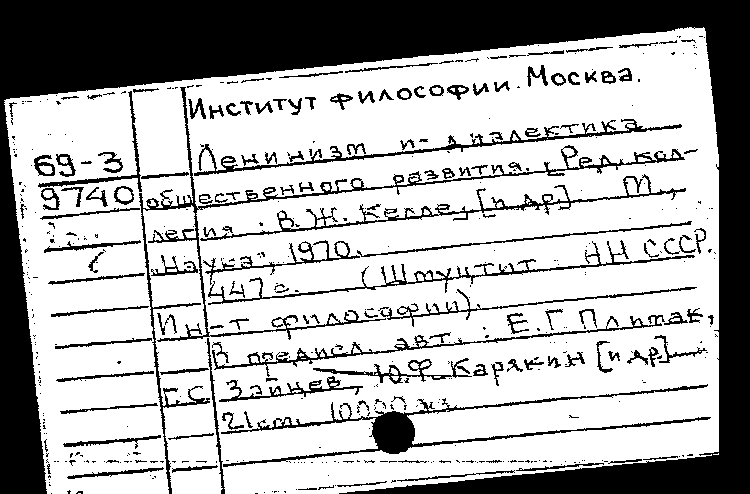 Институт философии. Москва.
69-3
Ленинизм и диалектика
9740
общественного развития. [Ред. кол-
легия: В.Ж. Келле, [и др]. М.,
"Наука", 1970.
447 с. (АН СССР.
Ин-т философии).
В предисл. авт.: Е.Г. Плимак,
Г.С. Зайцев, Ю.Ф. Карякин [и др]
21 см. 10000 экз.